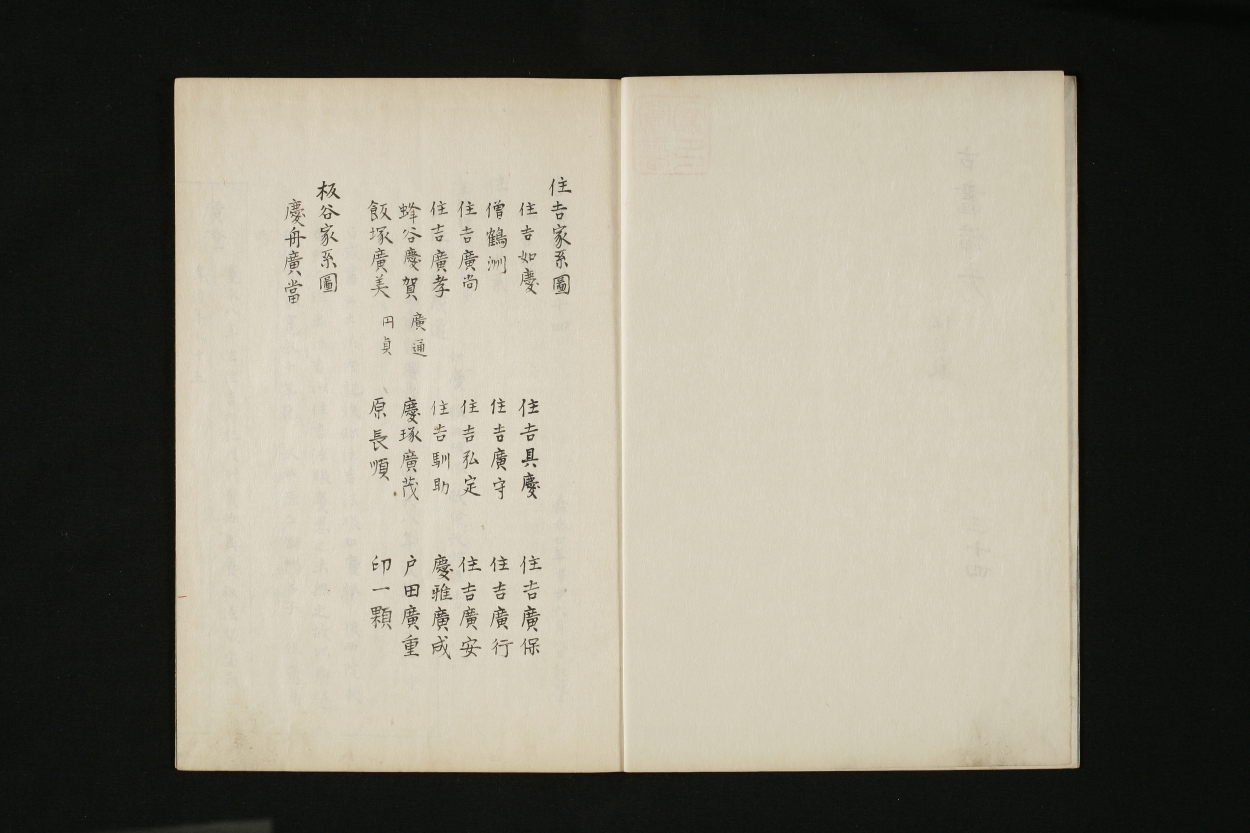 住吉家系圖
住吉如慶　住吉具慶　住吉廣保
僧鶴洲　住吉廣守　住吉廣行
住吉廣尚　住吉弘定　住吉廣安
住吉廣孝　住吉馴助　慶雅廣成
蜂谷慶賀 廣通　慶琢廣茂　戸田廣重
飯塚廣美 円貞　原長順　印一顆
板谷家系圖
慶舟廣當